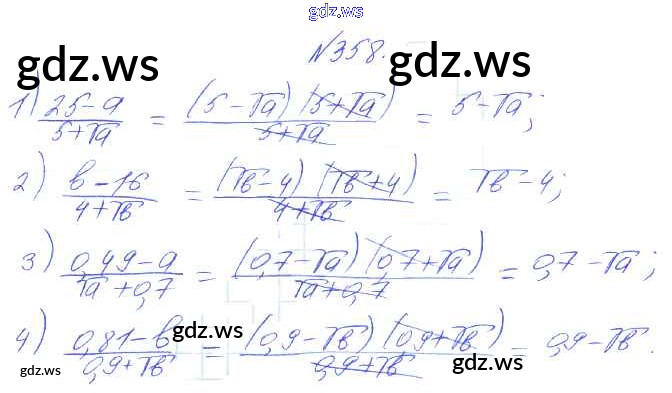 gdz.ws
№358.
gdz.ws gdz.ws
1) (25-a)/(5+√a) = ((5-√a)(5+√a))/(5+√a) = 5-√a;
2) (b-16)/(4+√b) = ((√b-4)(√b+4))/(4+√b) = √b-4;
3) (0,49-a)/(√a+0,7) = ((0,7-√a)(0,7+√a))/(√a+0,7) = 0,7-√a;
4) (0,81-b)/(0,9+√b) = ((0,9-√b)(0,9+√b))/(0,9+√b) = 0,9-√b.
gdz.ws gdz.ws gdz.ws